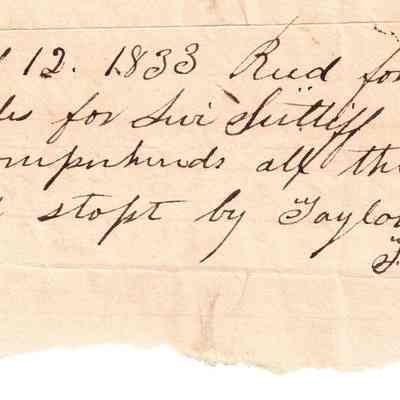 12. 1833 Recd for
for Levi Sutliff
comprehends all th
stopt by Taylo